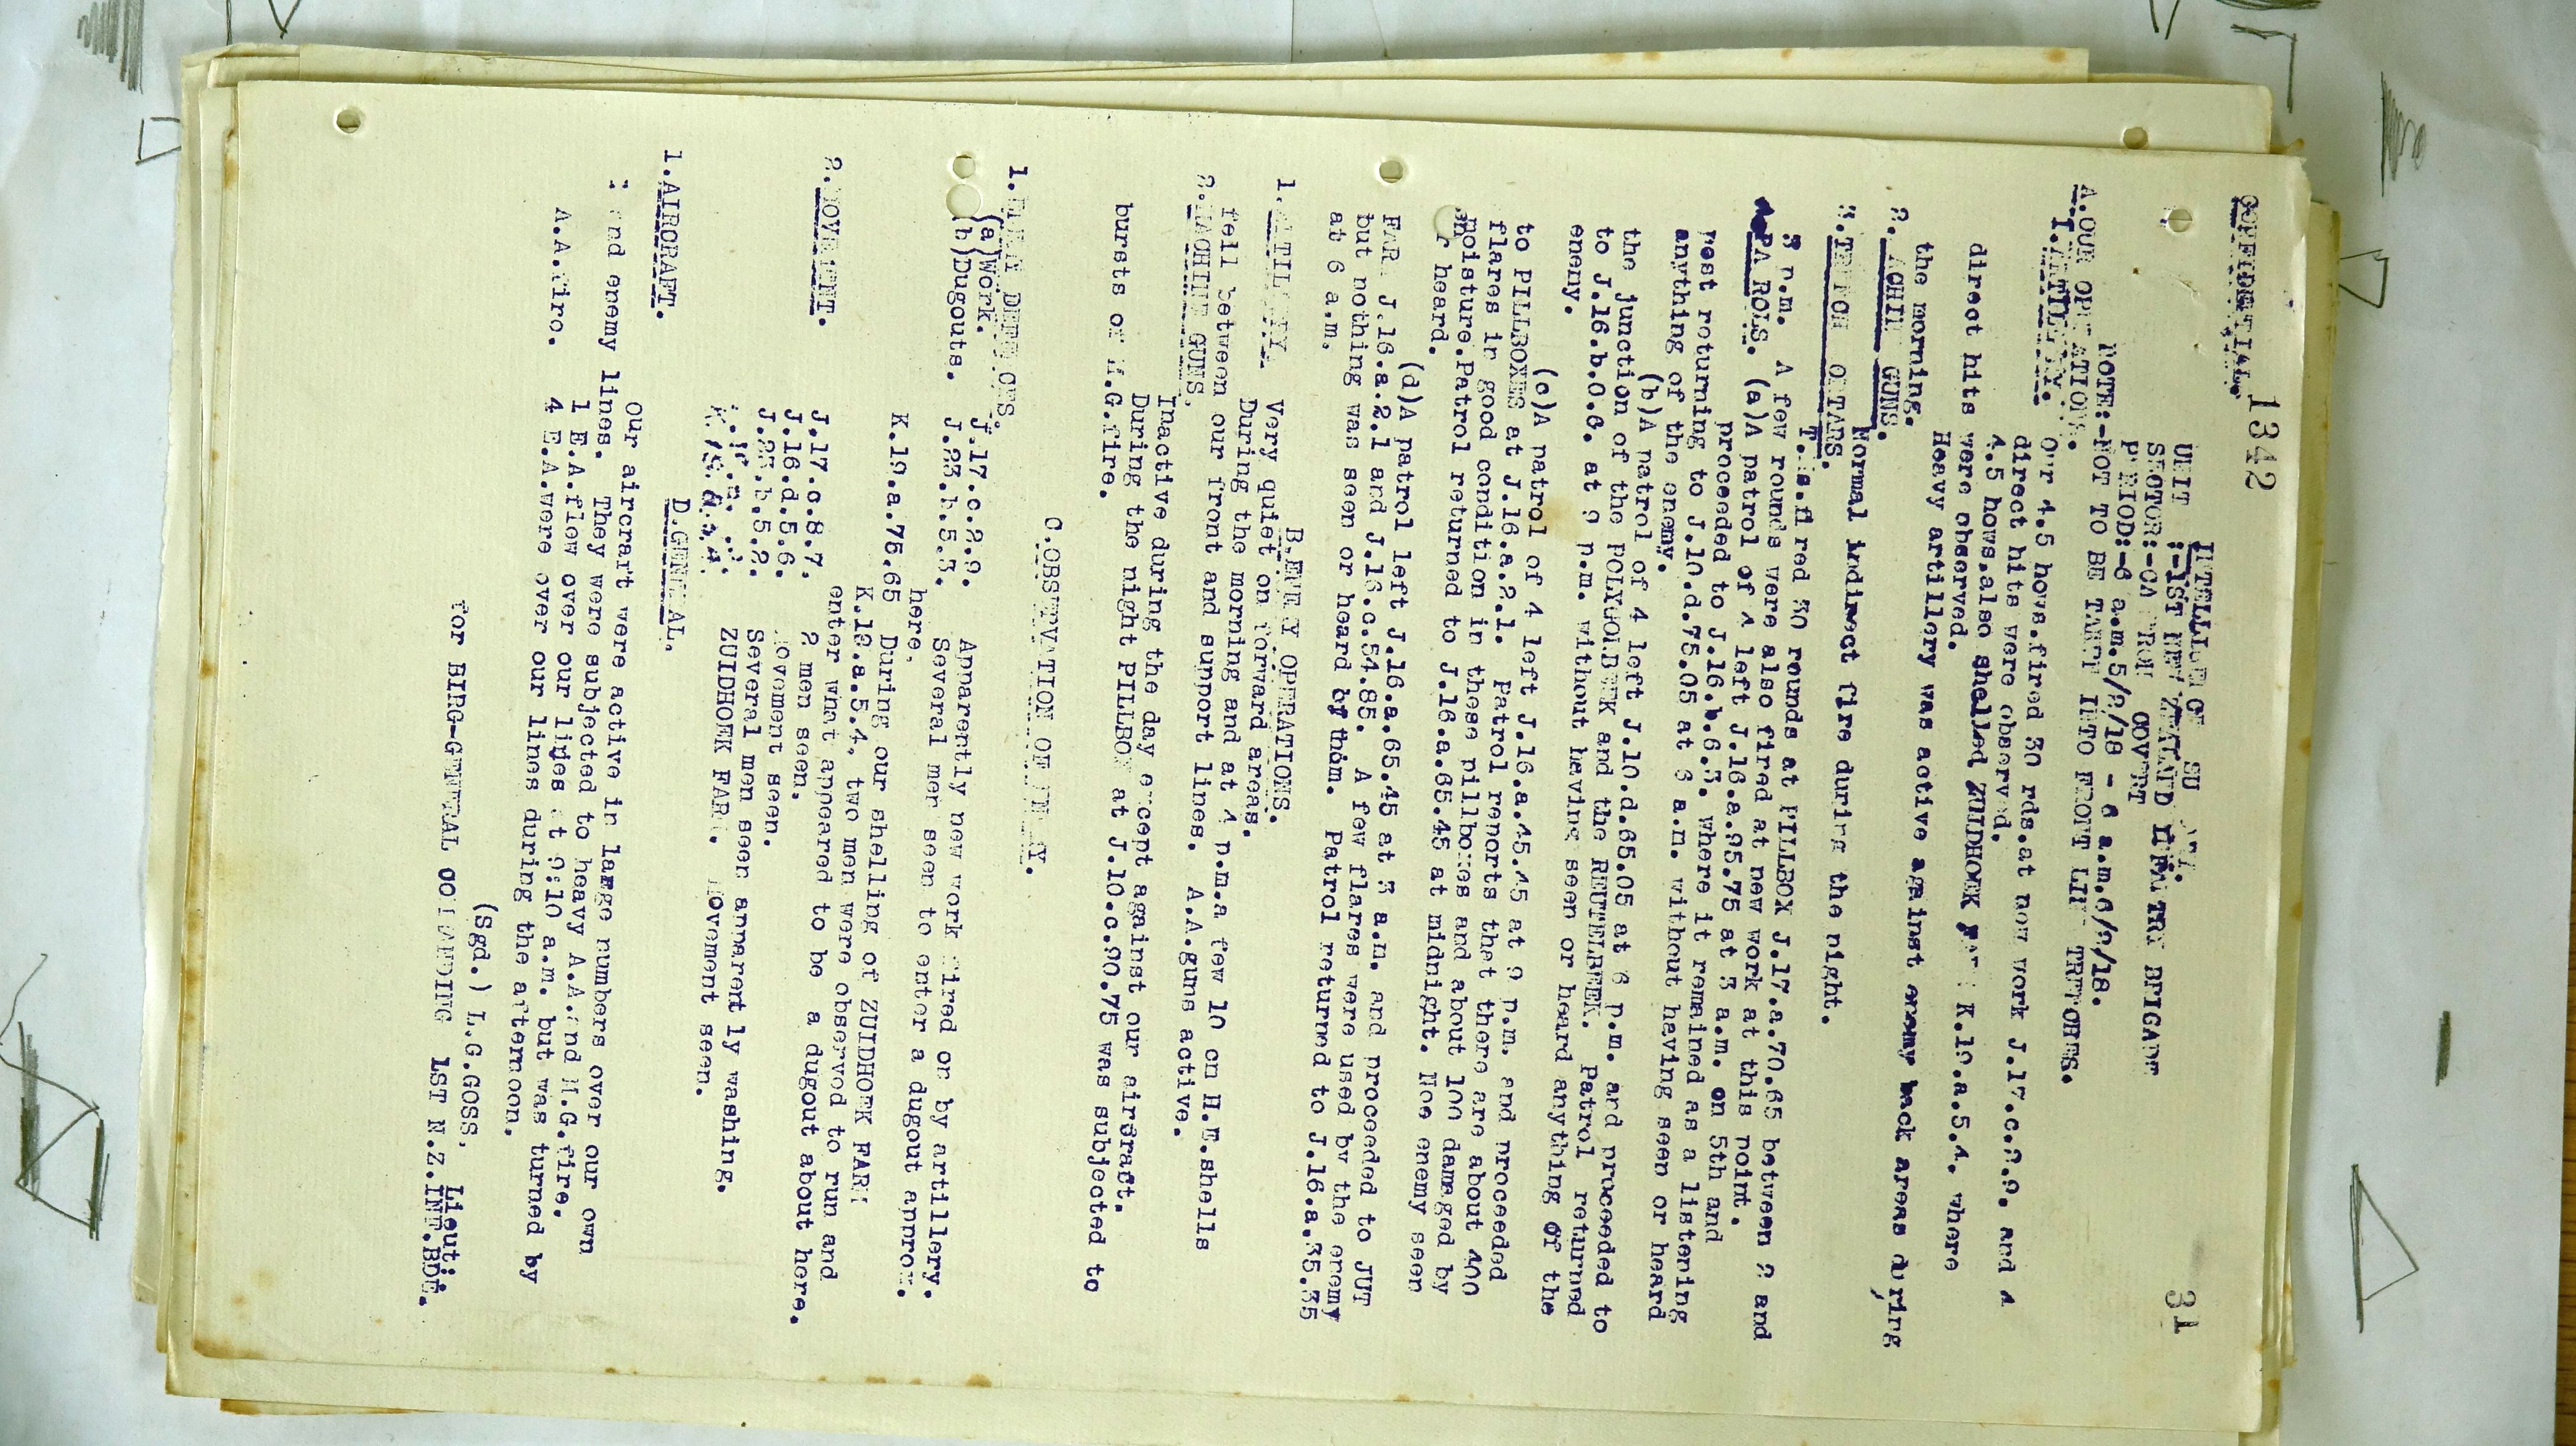 CONFIDENTIAL. 1342
31
INTELLIGENCE SU
UNIT :-1ST NEW ZEALAND INFANTRY BRIGADE
SECTOR:- COVERT
PERIOD:-6 a.m.5/2/18 - 6 a.m.6/2/18.
NOTE:-NOT TO BE TAKEN INTO FRONT LINE TRENCHES.
A.OUR OPERATIONS.
1.ARTILLERY.
Our 4.5 hows.fired 30 rds.at new work J.17.c.2.9. and 4
direct hits were observed.
4.5 hows.also shelled ZUIDHOEK FARM K.19.a.5.4. where
direct hits were observed.
Heavy artillery was active against enemy back areas during
the morning.
2.MACHINE GUNS.
Normal indirect fire during the night.
3.TRENCH MORTARS.
T.M.s.fired 30 rounds at PILLBOX J.17.a.70.65 between 2 and
3 p.m. A few rounds were also fired at new work at this point.
4.PATROLS. (a)A patrol of 4 left J.16.a.95.75 at 3 a.m. on 5th and
proceeded to J.16.b.6.3. where it remained as a listening
post returning to J.10.d.75.05 at 6 a.m. without having seen or heard
anything of the enemy.
(b)A patrol of 4 left J.10.d.65.05 at 6 p.m. and proceeded to
the junction of the POLYGONBEEK and the REUTELBEEK. Patrol returned
to J.16.b.0.6. at 9 p.m. without having seen or heard anything of the
enemy.
(c)A patrol of 4 left J.16.a.45.45 at 9 p.m. and proceeded
to PILLBOXES at J.16.a.2.1. Patrol reports that there are about 400
flares in good condition in these pillboxes and about 100 damaged by
moisture.Patrol returned to J.16.a.65.45 at midnight. Noe enemy seen
or heard.
(d)A patrol left J.16.a.65.45 at 3 a.m. and proceeded to JUT
FARM J.16.a.2.1 and J.16.c.54.85. A few flares were used by the enemy
but nothing was seen or heard of thom. Patrol returned to J.16.a.35.35
at 6 a.m.
B.ENEMY OPERATIONS.
1.ARTILLERY. Very quiet on forward areas.
During the morning and at 4 p.m.a few 10 cm H.E.shells
fell between our front and support lines. A.A.guns active.
2.MACHINE GUNS.
Inactive during the day except against our aircraft.
During the night PILLBOX at J.10.c.90.75 was subjected to
bursts of M.G.fire.
C.OBSERVATION OF ENEMY.
1.ENEMY DEFENCES.
(a)Work. J.17.c.2.9. Apparently new work fired on by artillery.
(b)Dugouts. J.23.b.5.3. Several men seen to enter a dugout approx.
here.
K.19.a.75.65 During our shelling of ZUIDHOEK FARM
K.19.a.5.4, two men were observed to run and
enter what appeared to be a dugout about here.
2.MOVEMENT. J.17.c.8.7. 2 men seen.
J.16.d.5.6. Movement seen.
J.23.b.5.2. Several men seen apparently washing.
ZUIDHOEK FARM. Movement seen.
D.GENERAL.
1.AIRCRAFT.
Our aircraft were active in large numbers over our own
and enemy lines. They were subjected to heavy A.A.and M.G.fire.
1 E.A.flew over our lines at 9:10 a.m. but was turned by
A.A.fire. 4 E.A.were over our lines during the afternoon.
(Sgd.) L.G.GOSS, Lieut;
for BIRG-GENERAL COMMANDING 1ST N.Z.INF.BDE.